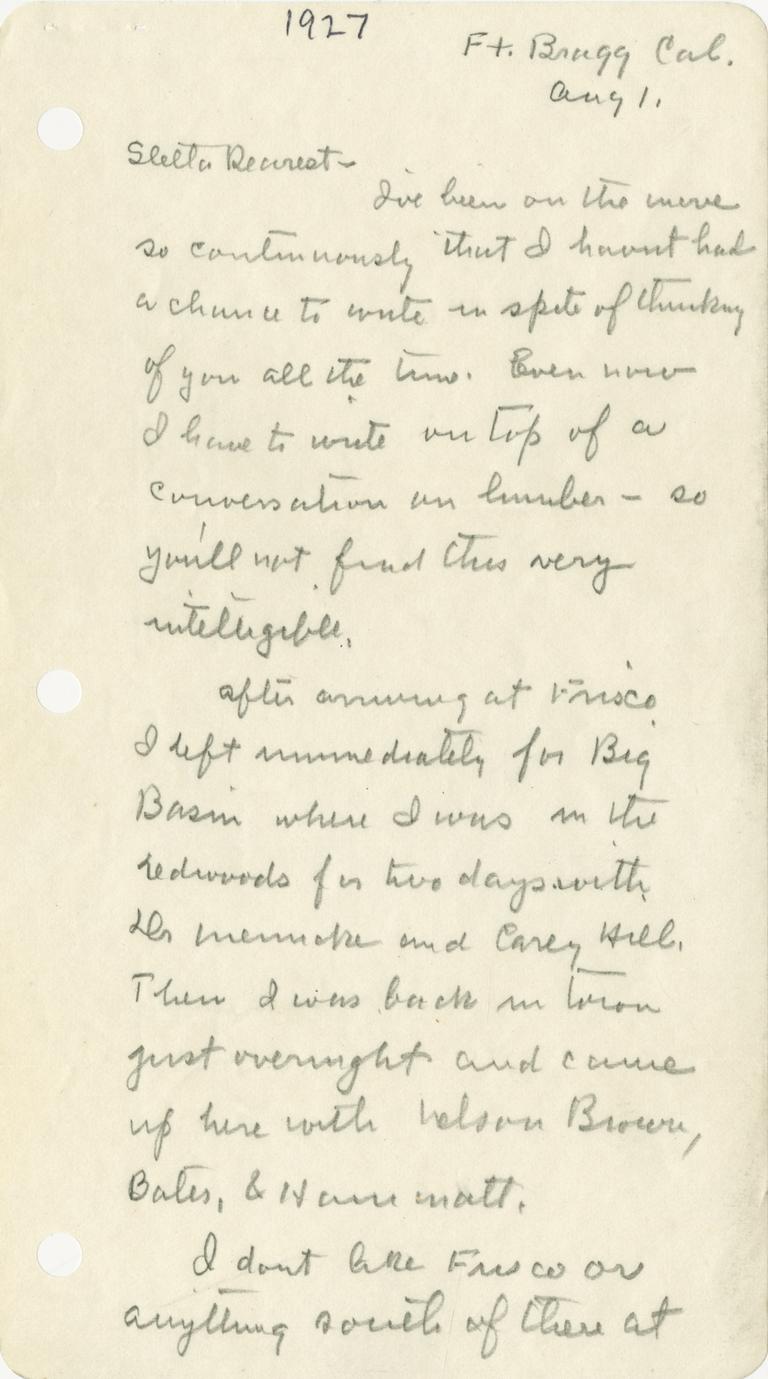 1927
Ft. Bragg Cal.
Aug 1.
Dearest -
I've been on the move
so continuously that I havnt had
a chance to write in spite of thinking
of you all the time. Even now
I have to write on top of a
conversation on lumber - so
you'll not find this very
intelligible.
After arriving at Frisco
I left immediately for Big
Basin where I was in the
redwoods for two days with
Dr and Carey Hill.
Then I was back in town
just overnight and came
up here with Nelson Brown,
Bates, & Hammatt.
I dont like Frisco or
anything south of there at